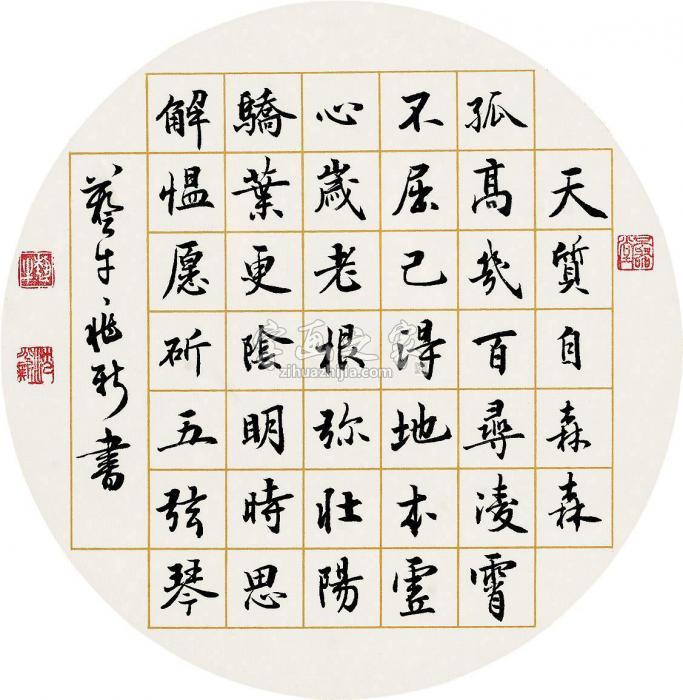 天質自森森
孤高幾百尋凌霄
不屈己得地本虛
心歲老根弥壯陽
驕葉更陰明時思
解愠愿斫五弦琴
書
字画之家
zihuazhijia.com